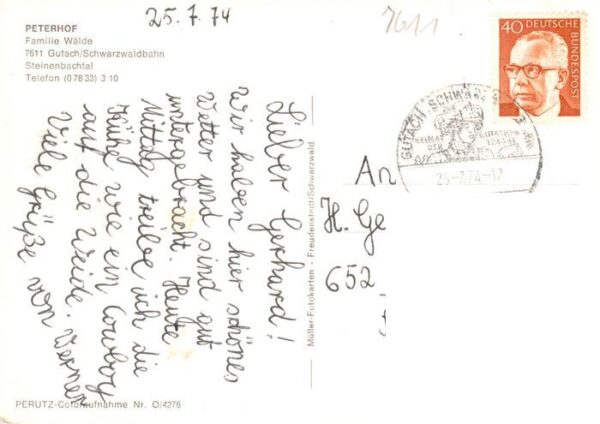 25.7.74
7611
PETERHOF
Familie Wälde
7611 Gutach/Schwarzwaldbahn
Steinenbachtal
Telefon (0 78 33) 3 10
40 DEUTSCHE
BUNDESPOST
GUTACH (SCHWARZW
HEIMAT
DER
GUTACHER
TRACHT
25-7.74-12
Lieber Gerhard!
Wir haben hier schönes
Wetter und sind gut
untergebracht. Heute
Mittag treibe ich die
Kühe wie ein Cowboy
auf die Weide.
Viele Grüße von Werner
Müller-Fotokarten - Freudenstadt/Schwarzwald
An
H. Ge
652
PERUTZ-Coloraufnahme Nr. O/4276